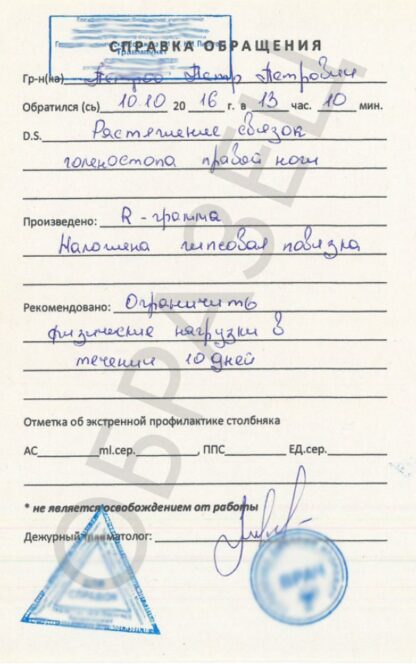 СПРАВКА ОБРАЩЕНИЯ
Гр-н(ка) Петров Петр Петрович
Обратился (сь) 10 10 20 16 г. в 13 час. 10 мин.
D.S. Растяжение связок
голеностопа правой ноги
Произведено: R - грамма
Наложена гипсовая повязка
Рекомендовано: Ограничить
физические нагрузки в
течении 10 дней
Отметка об экстренной профилактике столбняка
АС ml.сер. , ППС ЕД.сер.
* не является освобождением от работы
Дежурный травматолог:
СПРАВОК
ВРАЧ
ОБРАЗЕЦ